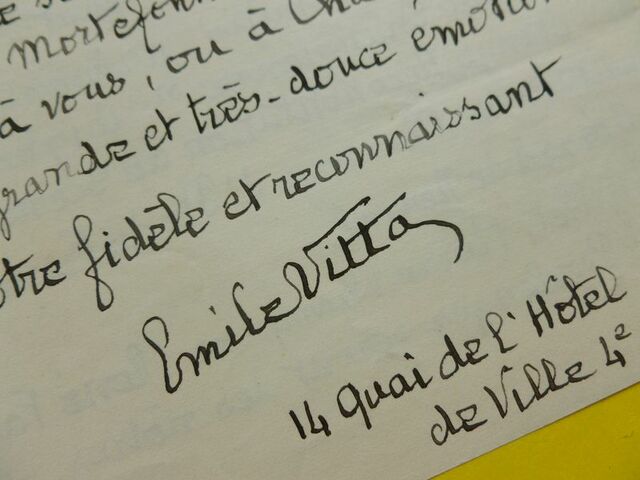 mortefon
à vous, ou à Cha
grande et très-douce émotion
otre fidèle et reconnaissant
Emile Vitta
14 Quai de l'Hôtel
de Ville 4e